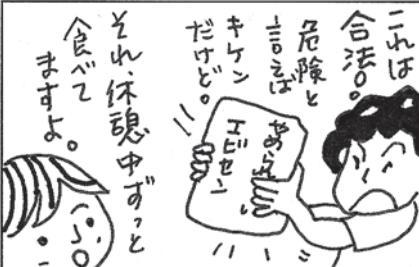 これは
合法。
危険と
言えば
キケン
だけど。
やめられない
エビセン
それ、休憩中ずっと
食べて
ますよ。